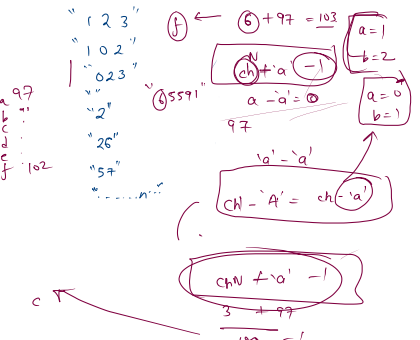 "1 2 3"
"1 0 2"
"023"
""
"2"
"26"
"57"
a 97
b
c
d
e
f 102
f ← 6 + 97 = 103
chN + 'a' - 1
"65591"
a - 'a' = 0
97
a = 1
b = 2
a = 0
b = 1
'a' - 'a'
ch - 'A' = ch - 'a'
chN + 'a' - 1
3 + 97
c